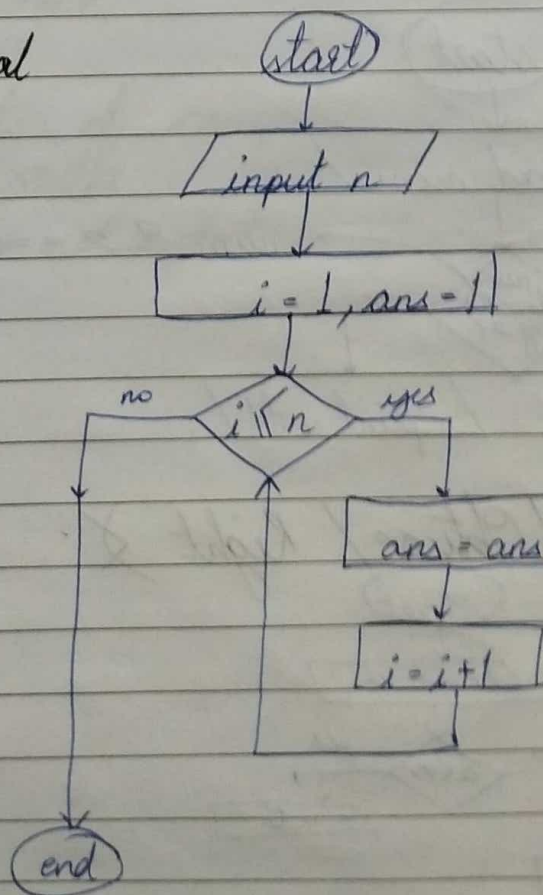 al
start
input n
i = 1, ans = 1
no
i ≤ n
yes
ans = ans
i = i + 1
end